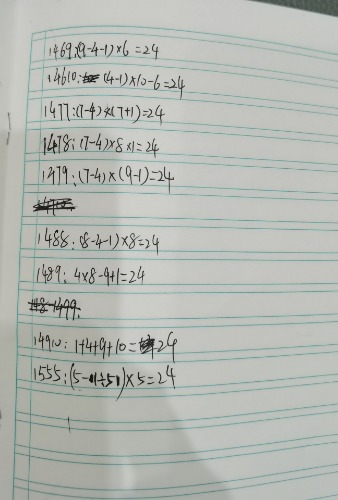 1469:(9-4-1)×6=24
14610: (4-1)×10-6=24
1477:(7-4)×(7+1)=24
1478:(7-4)×8×1=24
1479:(7-4)×(9-1)=24
1488:(8-4-1)×8=24
1489: 4×8-9+1=24
1499:
14910: 1+4+9+10=24
1555:(5-(1÷5))×5=24